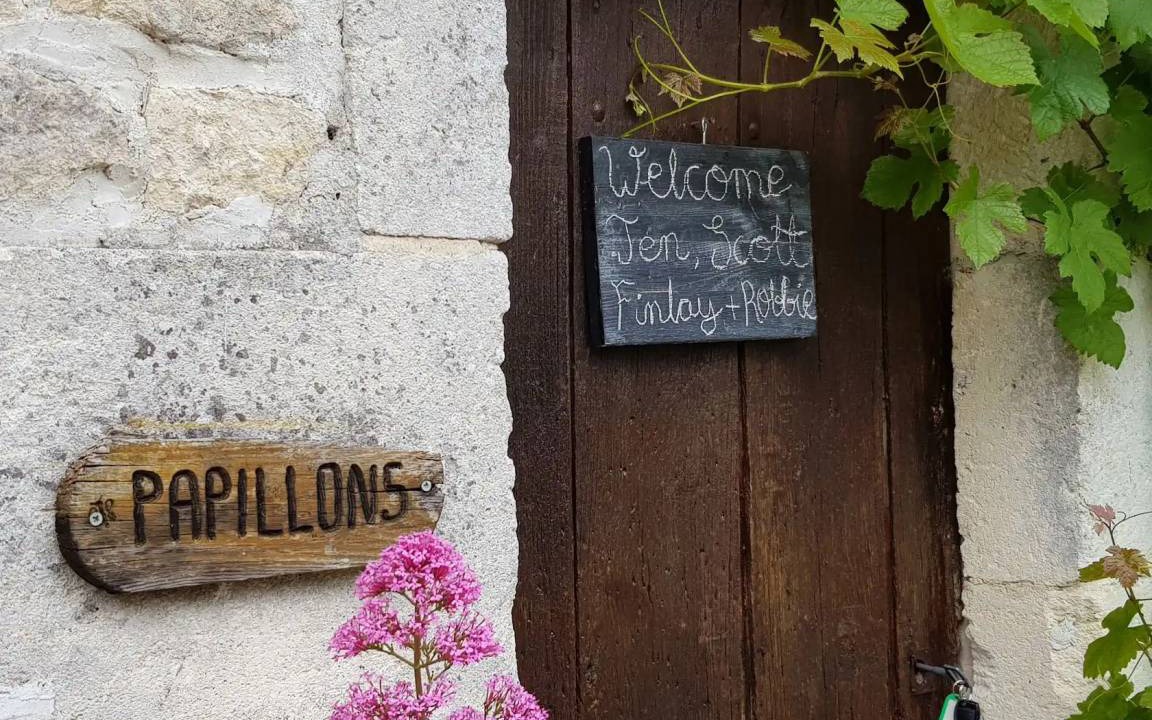 Welcome
Jen, Scott
Finlay + Robbie
PAPILLONS